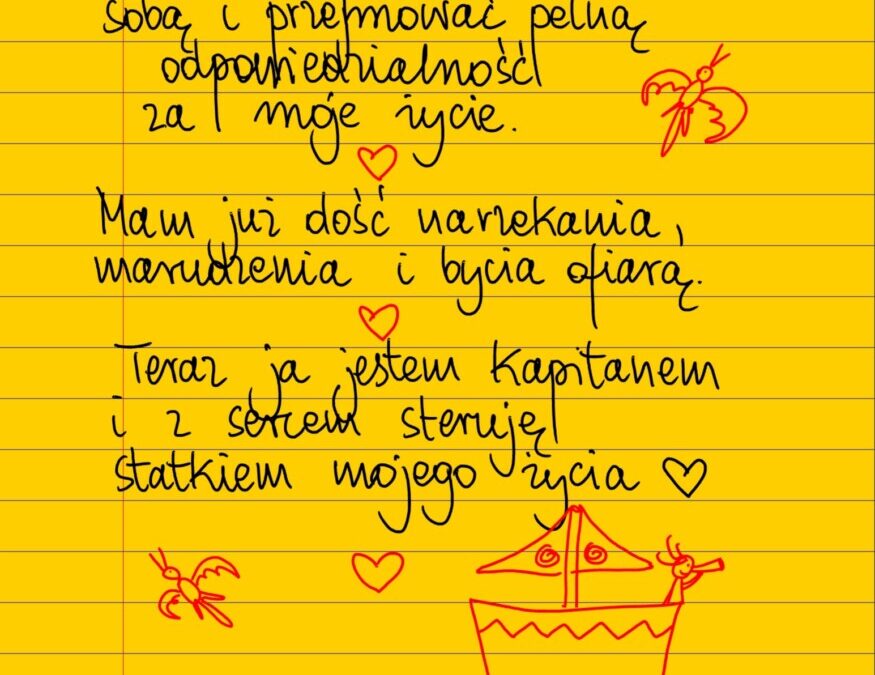 sobą i przejmować pełną
odpowiedzialność
za moje życie.
Mam już dość narzekania,
marudzenia i bycia ofiarą.
Teraz ja jestem kapitanem
i z sercem steruję
statkiem mojego życia